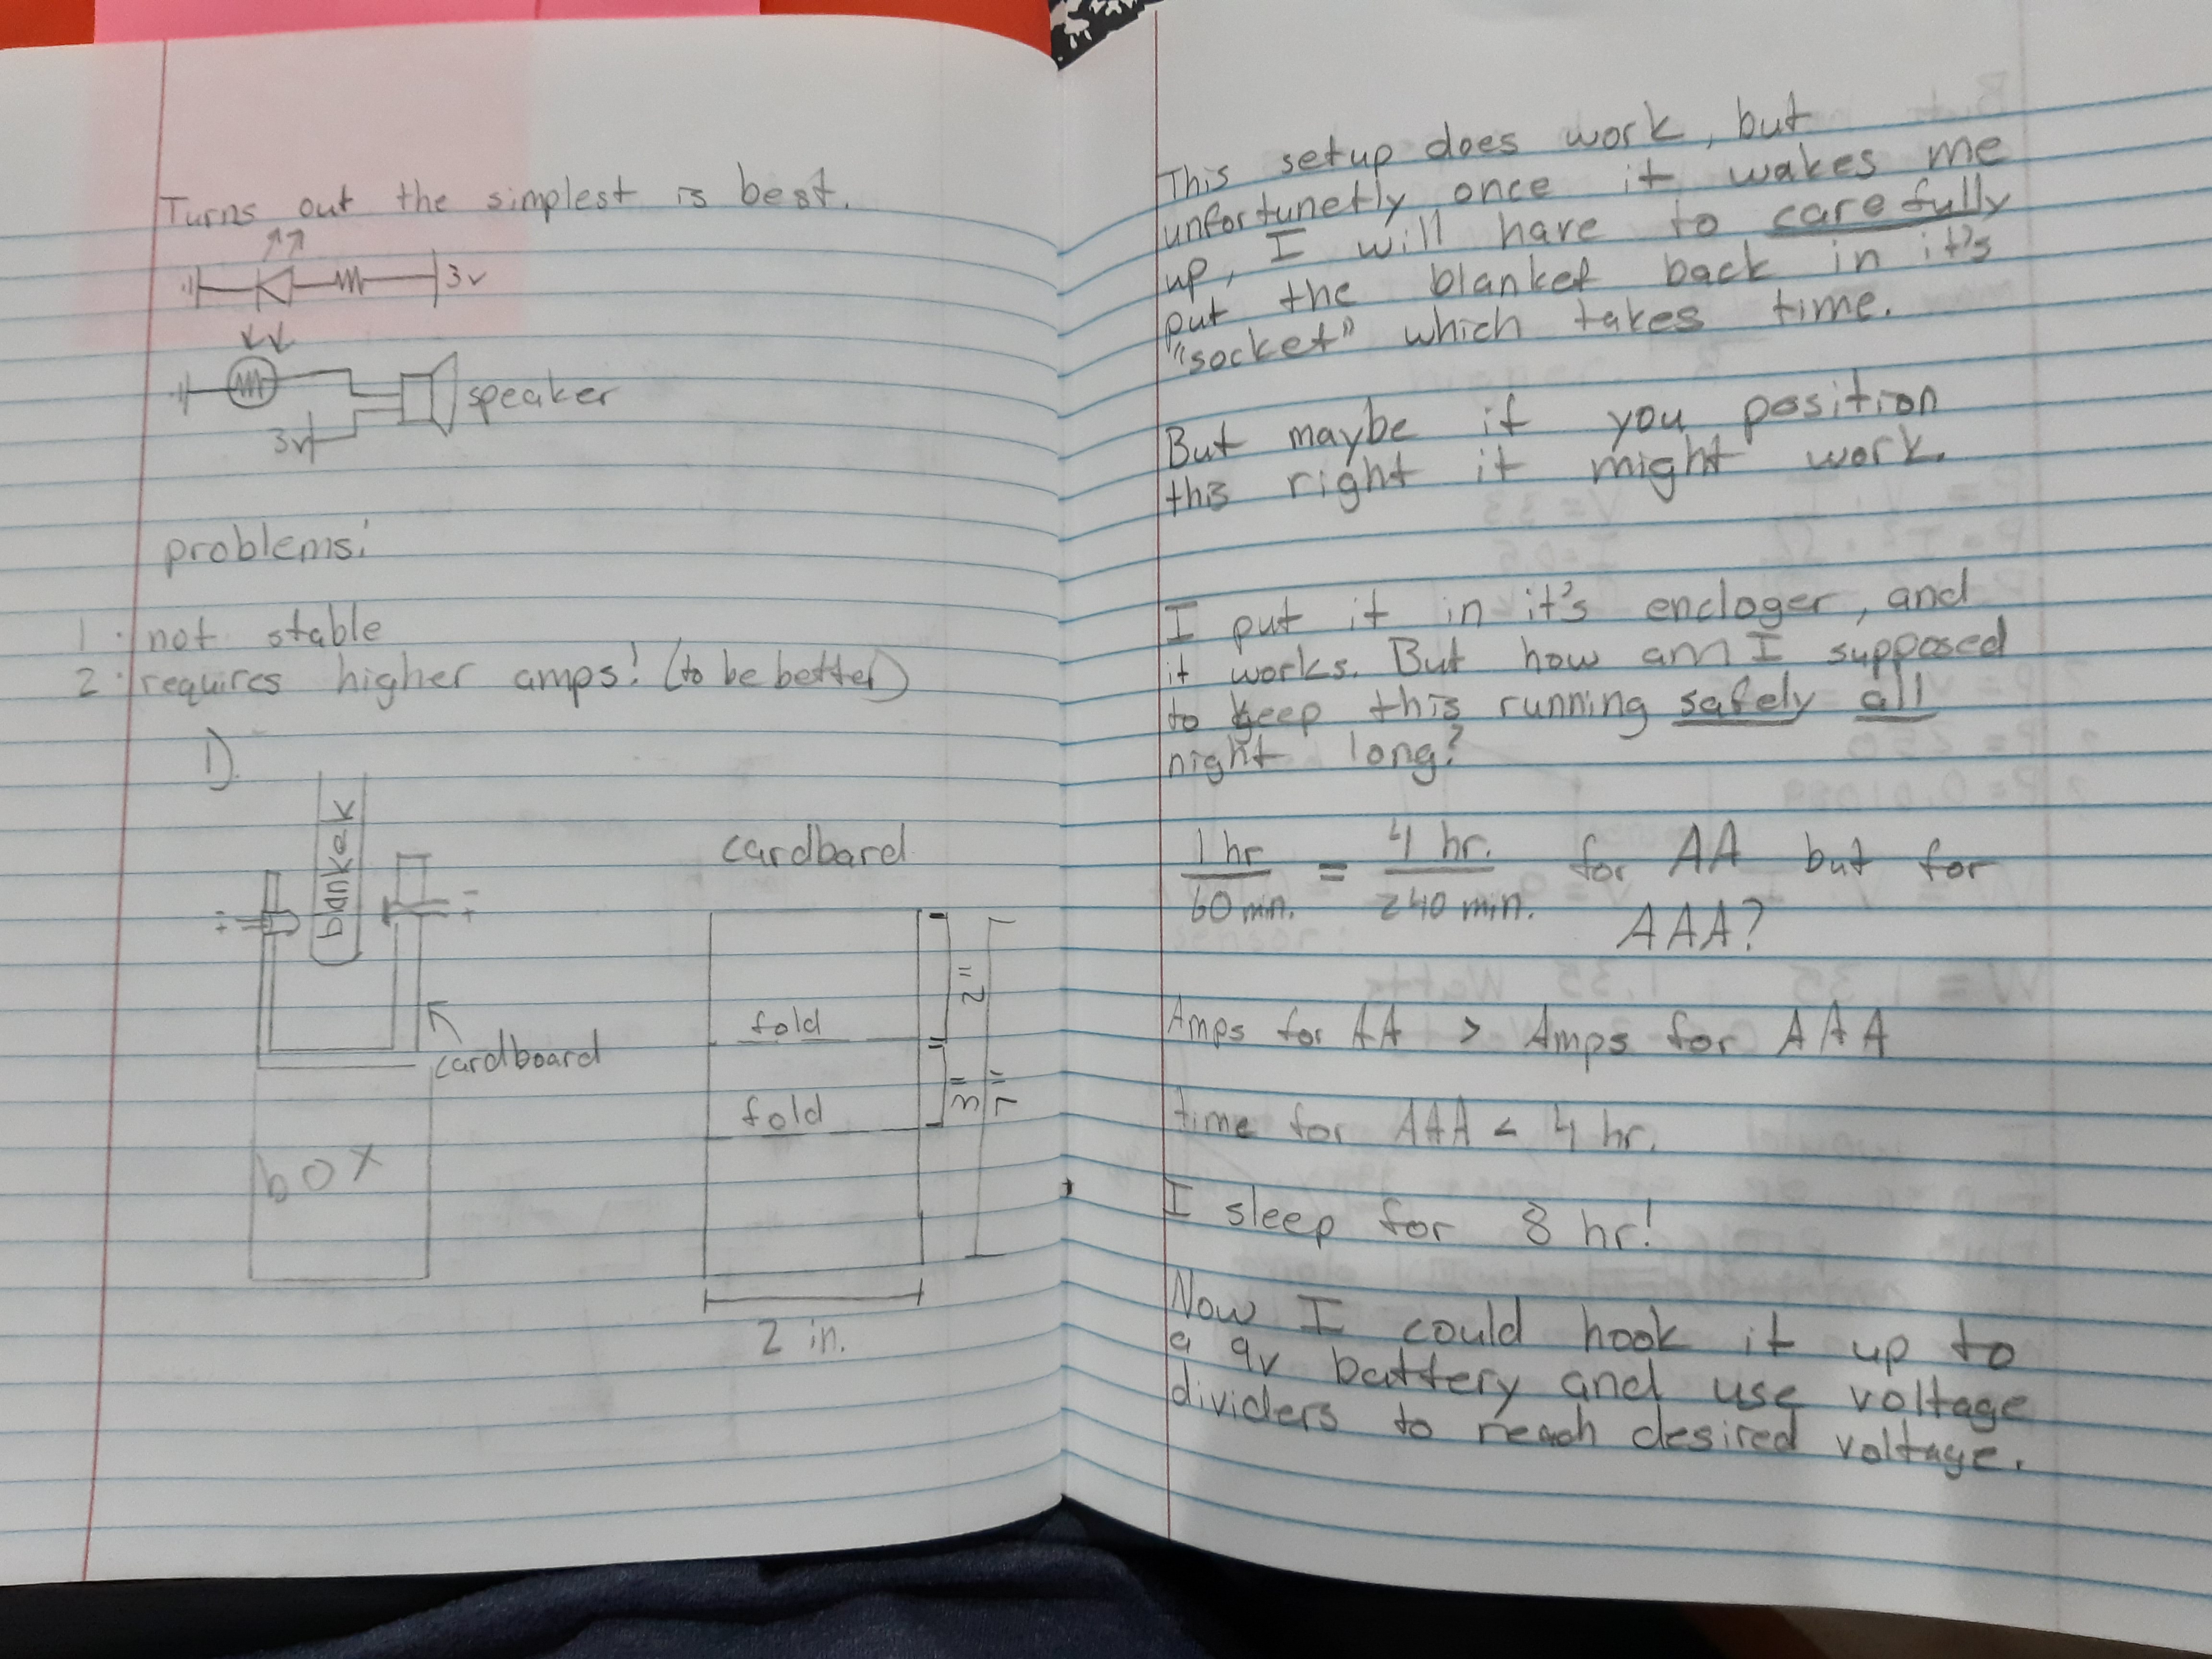 Turns out the simplest is best.
3v
speaker
3v
problems:
1. not stable
2. requires higher amps! (to be better)
1).
blanket
cardboard
box
cardbard
fold
fold
2"
3"
7"
2 in.
This setup does work, but
unfortunetly once it wakes me
up, I will have to carefully
put the blanket back in it's
"socket" which takes time.
But maybe if you position
this right it might work.
I put it in it's encloger, and
it works. But how am I supposed
to keep this running safely all
night long?
1 hr / 60 min. = 4 hr. / 240 min. for AA but for
AAA?
Amps for AA > Amps for AAA
time for AAA < 4 hr.
I sleep for 8 hr!
Now I could hook it up to
a 9v battery and use voltage
dividers to reach desired voltage.